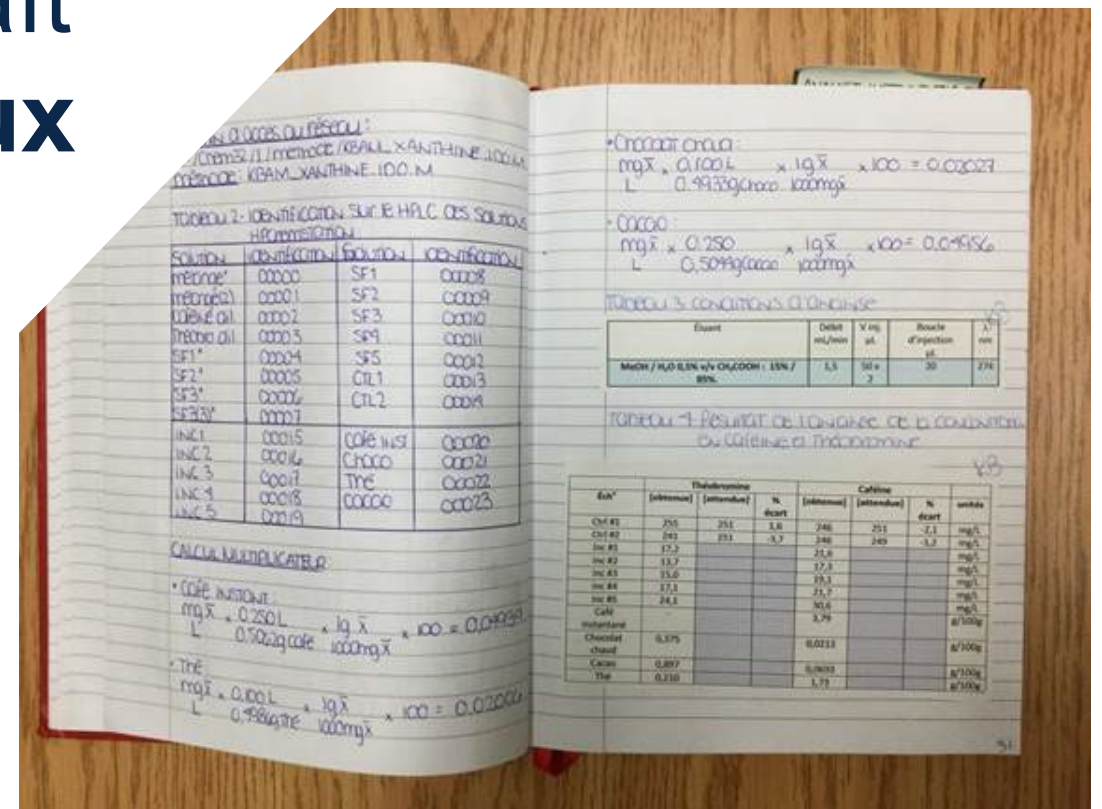 ux
accès au réseau :
/Chem32/1/methode/KBAM_XANTHINE.100.M
méthode: KBAM_XANTHINE.100.M
Tableau 2: Identification sur le HPLC des solutions
Solution Identification Solution Identification
mélange* 00000 SF1 00008
mélange(2) 00001 SF2 00009
00002 SF3 00010
00003 SF4 00011
SF1* 00004 SF5 00012
SF2* 00005 CTL1 00013
SF3* 00006 CTL2 00014
SF3(3)* 00007
INC1 00015 Café inst 00020
INC 2 00016 Choco 00021
INC 3 00017 Thé 00022
INC 4 00018 Cacao 00023
INC 5 00019
CALCUL MULTIPLICATEUR
• Café instant
mg x̄ x 0.250L x 1g x̄ x 100 =
L 0.5022g café 1000mg x̄
• Thé
mg x̄ x 0.100L x 1g x̄ x 100 =
L thé 1000mg x̄
• Chocolat chaud :
mg x̄ x 0.100L x 1g x̄ x 100 = 0.02027
L 0.4933g choco 1000mg x̄
• Cacao :
mg x̄ x 0.250 x 1g x̄ x 100 = 0.04956
L cacao 1000mg x̄
Tableau 3: Conditions d'analyse
Éluant Débit mL/min V inj. µL Boucle d'injection µL λ nm
MeOH / H₂O 0,5% v/v CH₃COOH : 15% / 85% 1,5 50 x 2 20 274
Tableau 4: Résultat de l'analyse de la concentration
en caféine et théobromine
KB
Théobromine Caféine
Éch° [obtenue] [attendue] % écart [obtenue] [attendue] % écart unités
Ctrl #1 255 251 1,6 246 251 -2,1 mg/L
Ctrl #2 241 251 -3,7 246 249 -1,2 mg/L
Inc #1 17,2 21,6 mg/L
Inc #2 13,7 17,3 mg/L
Inc #3 15,0 19,1 mg/L
Inc #4 17,1 21,7 mg/L
Inc #5 24,1 30,6 mg/L
Café instantané - 3,79 g/100g
Chocolat chaud 0,375 0,0213 g/100g
Cacao 0,897 g/100g
Thé 0,210 1,73 g/100g
51